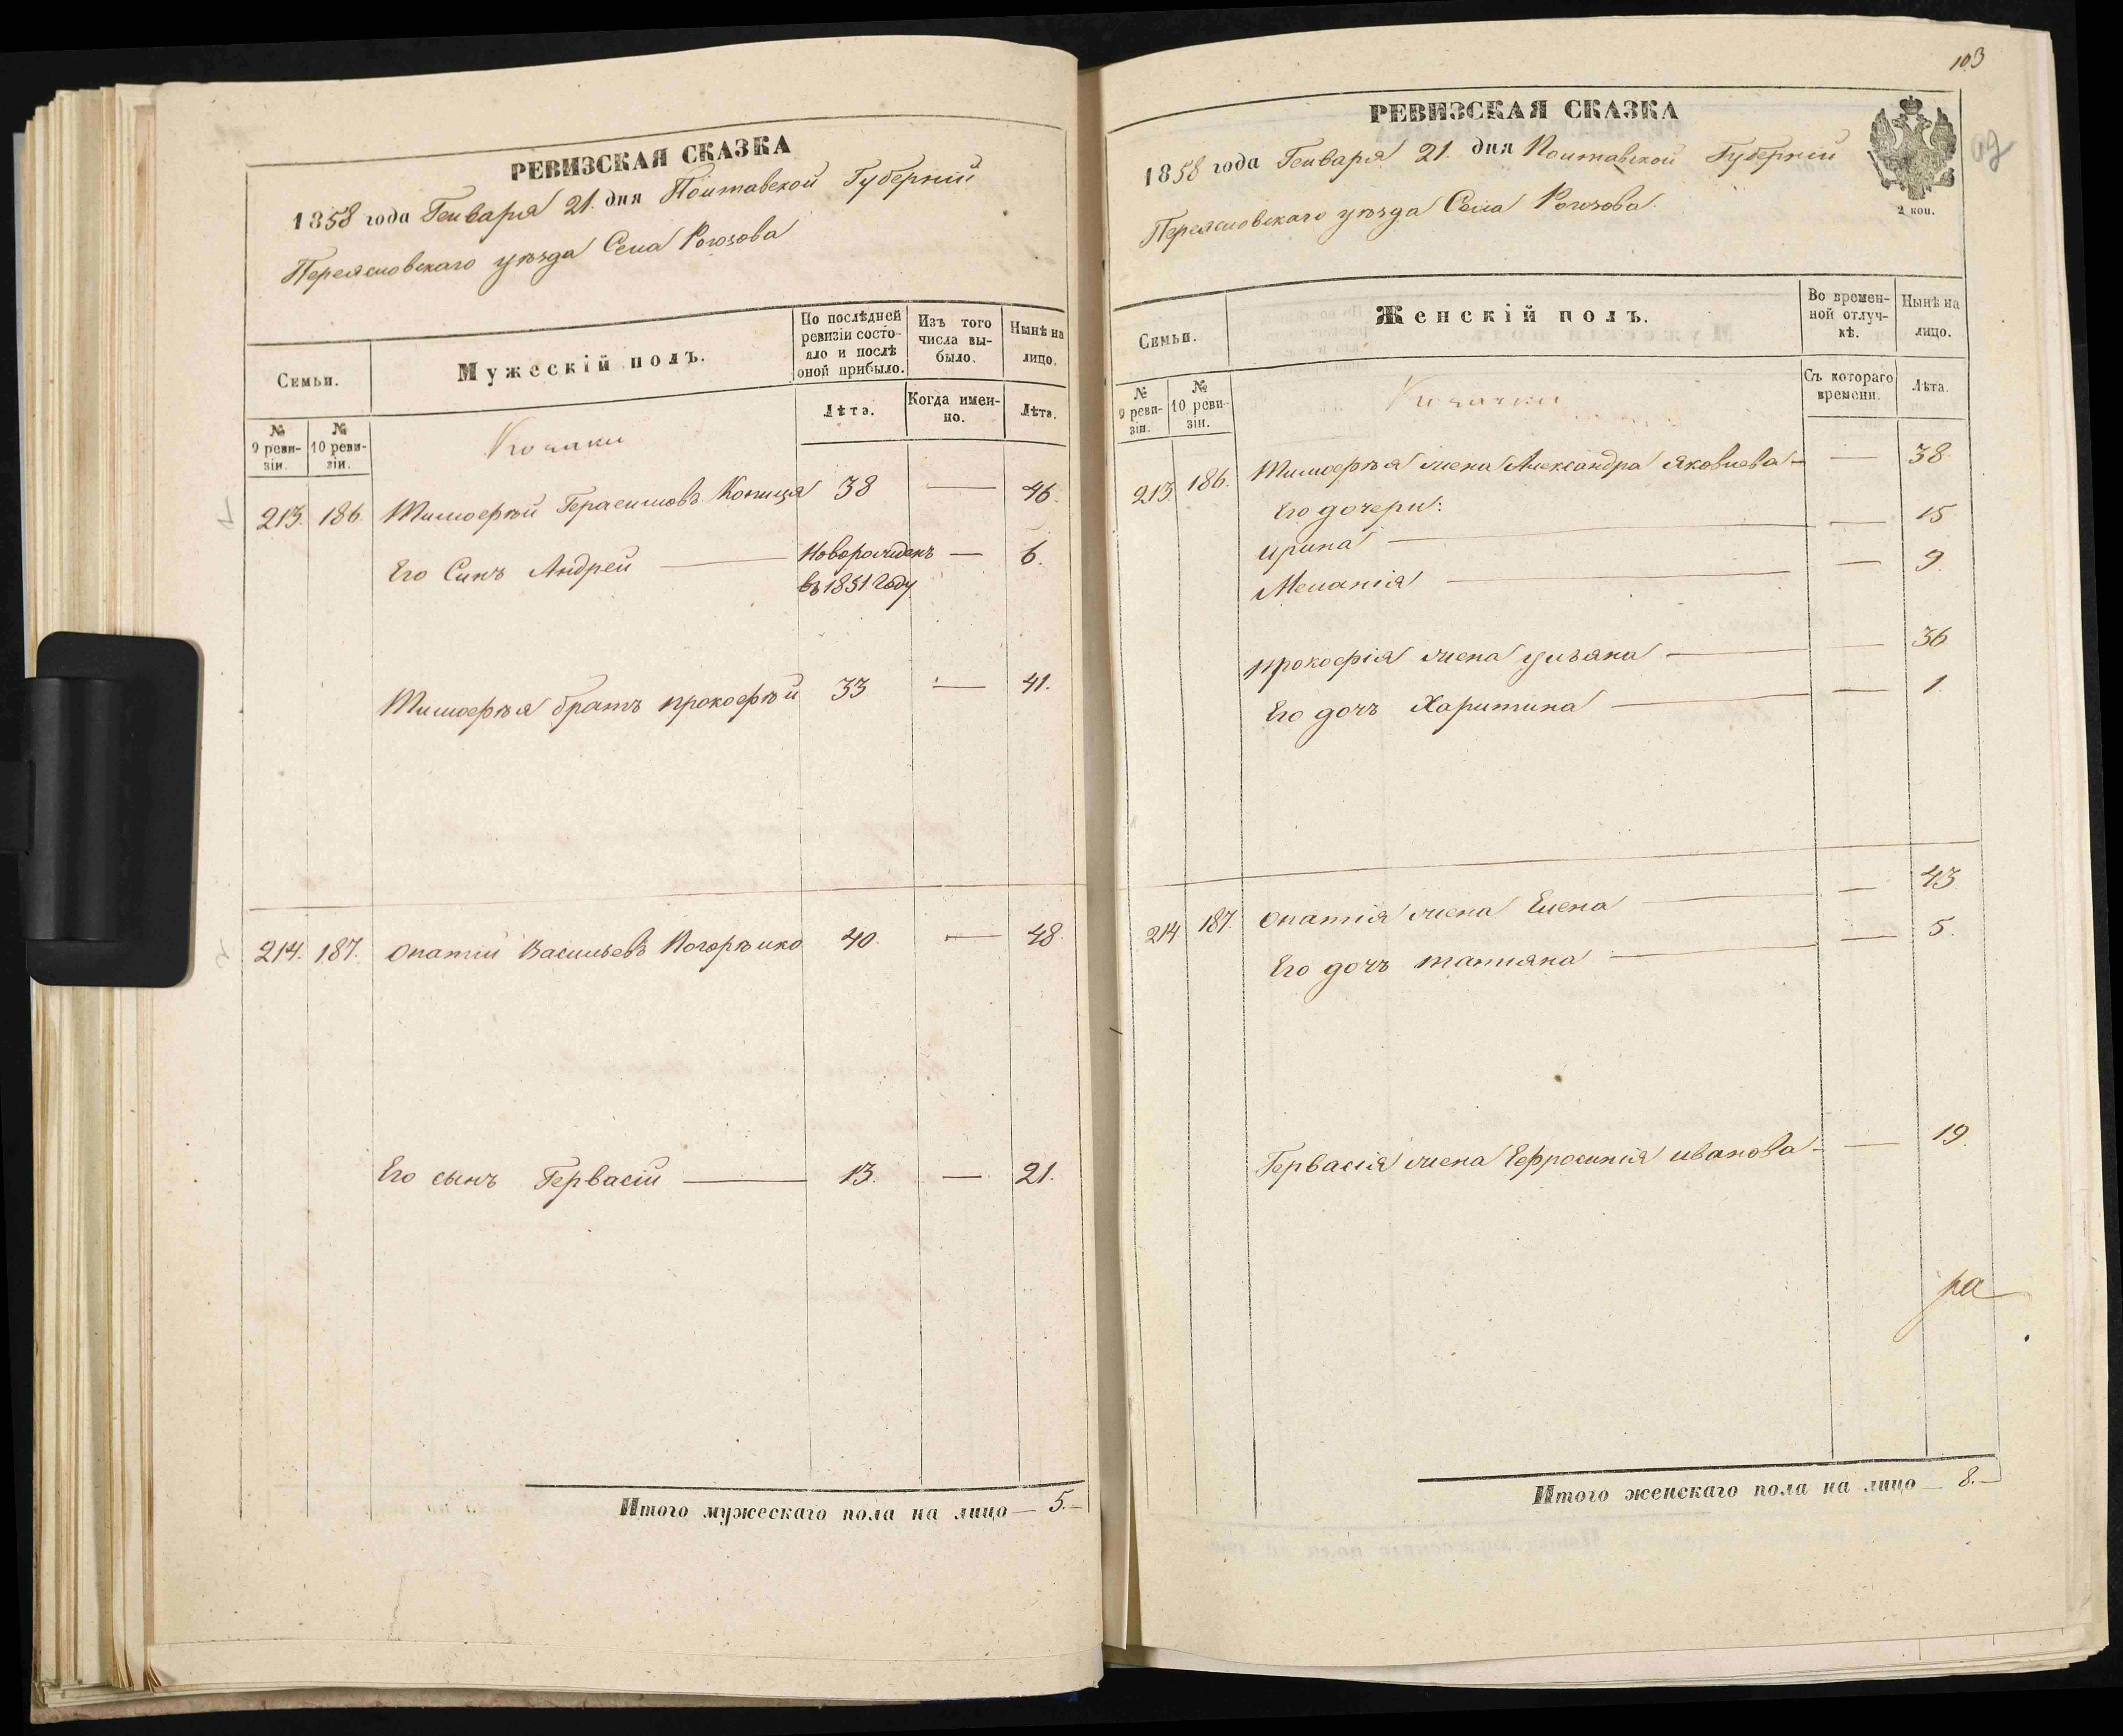 РЕВИЗСКАЯ СКАЗКА
1858 года Генваря 21. дня Полтавской Губерніи
Переясловскаго уѣзда Села Рогозова
Семьи.
Мужескій полъ.
По послѣдней ревизіи состояло и послѣ оной прибыло.
Изъ того числа выбыло.
Нынѣ на лицо.
№ 9 ревизіи.
№ 10 ревизіи.
Козаки
Лѣта.
Когда именно.
Лѣта.
213. 186. Тимофѣй Герасимовъ Копица 38 — 46.
Его Синъ Андрей — Новорожденъ — 6.
въ 1851 Году
Тимофѣя братъ прокофѣй 33 — 41.
214. 187. Опатій Васильевъ Погорѣлко 40. — 48.
Его сынъ Гервасій — 13. — 21.
Итого мужескаго пола на лицо — 5.—
103
РЕВИЗСКАЯ СКАЗКА
1858 года Генваря 21. дня Полтавской Губерніи
Переясловскаго уѣзда Села Рогозова.
2 коп.
Семьи.
Женскій полъ.
Во временной отлучкѣ.
Нынѣ на лицо.
№ 9 ревизіи.
№ 10 ревизіи.
Козачки
Съ котораго времени.
Лѣта.
213 186. Тимофѣя жена Александра Яковлева — — 38.
Его дочери:
ирина — — 15
Меланія — — 9
прокофія жена ульяна — — 36
Его дочъ Харитина — — 1.
214 187 Опатія жена Елена — — 43
Его дочъ татияна — — 5.
Гервасія жена Ефросинія иванова — — 19.
ра
Итого женскаго пола на лицо — 8.—